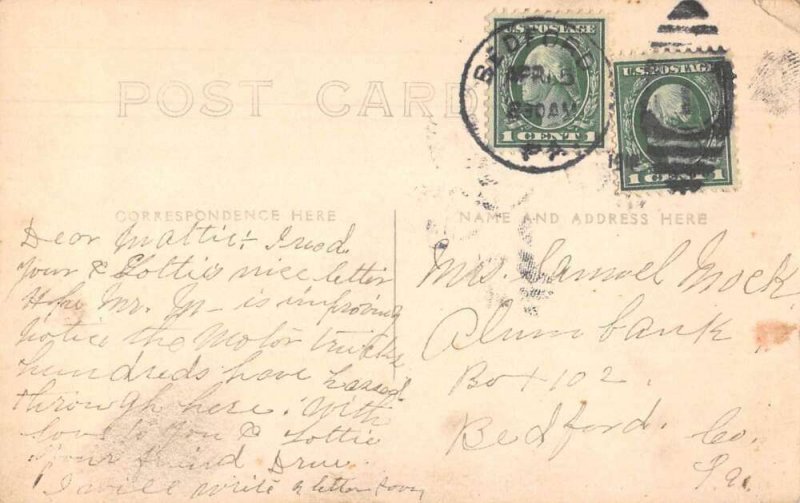 POST CARD
BEDFORD
APR 5
30 AM
PA.
U.S. POSTAGE
1 CENT 1
U.S. POSTAGE
1 CENT 1
CORRESPONDENCE HERE
NAME AND ADDRESS HERE
Dear Mattie:- I recd
your & Lottie's nice letter
Hope Mr. M- is improving
notice the Motor trucks
hundreds have passed
through here. With
love to you & Lottie
your friend
I will write a letter soon
Mrs. Samuel Mock
Alum bank
Box 102.
Bedford. Co.
Pa.